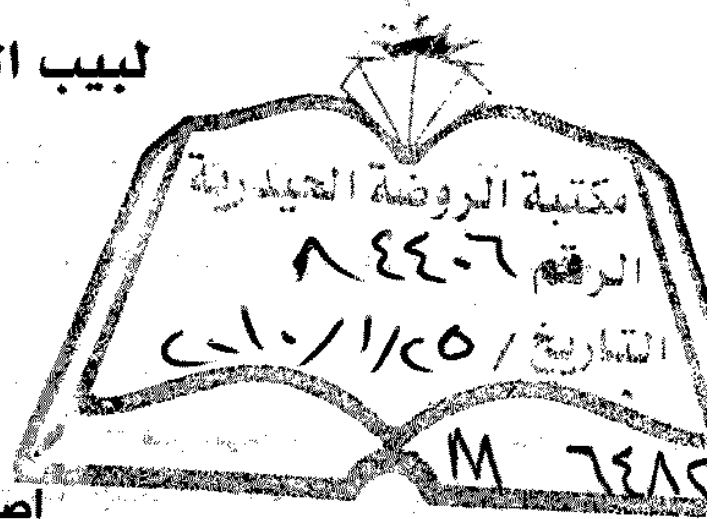 لبيب
مكتبة الروضة الحيدرية
الرقم ٨٤٤٠٦
التاريخ / ٢٥/١/٢٠١٠
M ٦٤٨٢